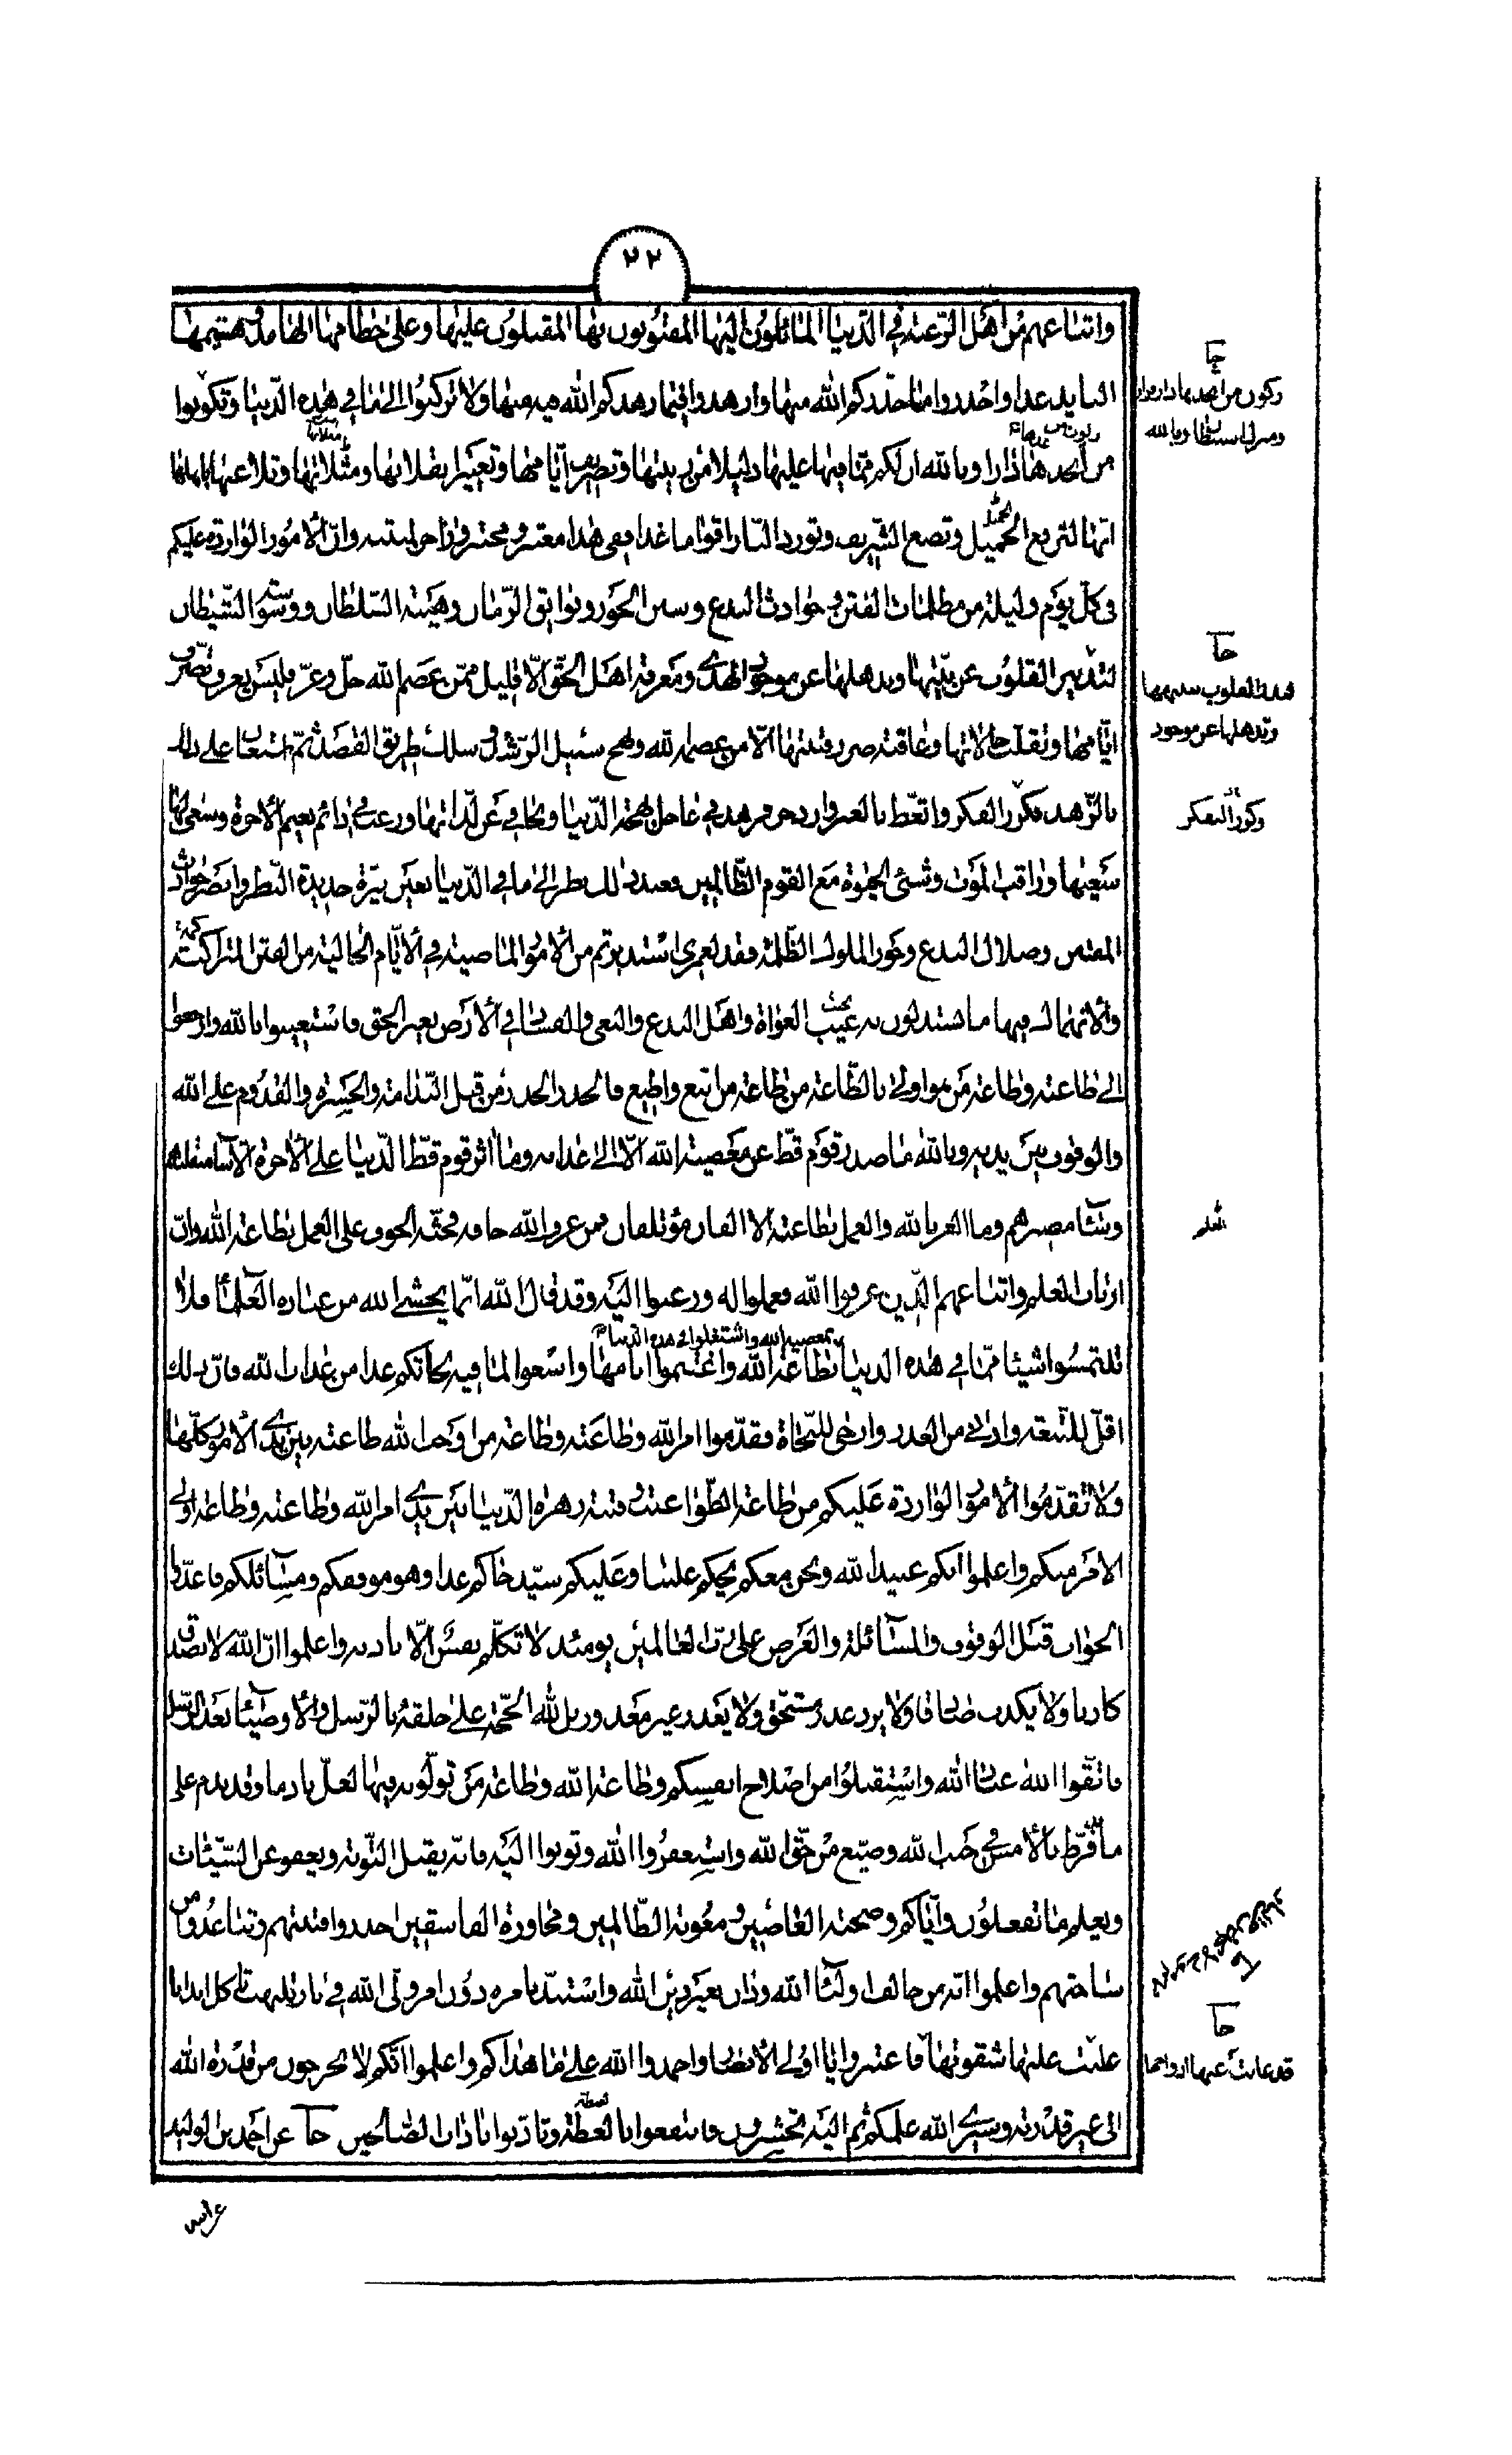 ٢٢
واتباعهم من اهل الرغبة في الدنيا المائلون اليها المفتونون بها المقبلون عليها وعلى حطامها الهامد وهشيمها
البايد غدا واحذروا ما حذركم الله منها وازهدوا فيما زهدكم الله فيه منها ولا تركنوا الى ما في هذه الدنيا ركون
من اتخذها دارا وبالله ان لكم مما فيها عليها دليلا من زينتها وتصريف ايامها وتغيير انقلابها ومثلاتها وتلاعبها باهلها
انها لترفع الخميل وتضع الشريف وتورد النار اقواما غدا ففي هذا معتبر ومختبر وزاجر لمنتبه وان الامور الواردة عليكم
في كل يوم وليلة من مظلمات الفتن وحوادث البدع وسنن الجور وبوائق الزمان وهيبة السلطان ووسوسة الشيطان
لتدبر القلوب عن نيتها وتذهلها عن موجود الهدى ومعرفة اهل الحق الا قليل ممن عصم الله جل وعز فليس يعرف تصرف
ايامها وتقلب حالاتها وعاقبة ضرر فتنتها الا من عصم الله ونهج سبيل الرشد وسلك طريق القصد ثم استعان على ذلك
بالزهد فكرر الفكر واتعظ بالعبر وازدجر فزهد في عاجل بهجة الدنيا وتجافى عن لذاتها ورغب في دائم نعيم الاخرة وسعى لها
سعيها وراقب الموت وشنئ الحيوة مع القوم الظالمين فعند ذلك نظر الى ما في الدنيا بعين نيرة حديدة النظر وابصر حوادث
الفتن وضلال البدع وجور الملوك الظلمة فقد لعمرى استدبرتم من الامور الماضية في الايام الخالية من الفتن المتراكمة
والانهماك فيها ما تستدلون به على تجنب الغواة واهل البدع والبغي والفساد في الارض بغير الحق فاستعينوا بالله وارجعوا
الى طاعته وطاعة من هو اولى بالطاعة من طاعة من اتبع واطيع فالحذر الحذر من قبل الندامة والحسرة والقدوم على الله
والوقوف بين يديه وبالله ما صدر قوم قط عن معصية الله الا الى عذابه وما اثر قوم قط الدنيا على الاخرة الا ساء منقلبهم
وساء مصيرهم وما العز بالله والعمل بطاعته الا الفان مؤتلفان فمن عرف الله خافه وحثه الخوف على العمل بطاعة الله وان
ارباب العلم واتباعهم الذين عرفوا الله فعملوا له ورغبوا اليه وقد قال الله انما يخشى الله من عباده العلماء فلا
تلتمسوا شيئا مما في هذه الدنيا بطاعة الله واغتنموا ايامها واسعوا لما فيه نجاتكم غدا من عذاب الله فان ذلك
بمعصية الله واشتغلوا في هذه الدنيا
اقل للتبعة وادنى من العذر وارجى للنجاة فقدموا امر الله وطاعته وطاعة من اوجب الله طاعته بين يدى الامور كلها
ولا تقدموا الامور الواردة عليكم من طاعة الطواغيت وفتنة زهرة الدنيا بين يدى امر الله وطاعته وطاعة اولي
الامر منكم واعلموا انكم عبيد الله ونحن معكم يحكم علينا وعليكم سيد حاكم غدا وهو موقفكم ومسائلكم فاعدوا
الجواب قبل الوقوف والمسائلة والعرض على رب العالمين يومئذ لا تكلم نفس الا باذنه واعلموا ان الله لا يصدق
كاذبا ولا يكذب صادقا ولا يرد عذر مستحق ولا يعذر غير معذور بل لله الحجة على خلقه بالرسل والاوصياء بعد الرسل
فاتقوا الله عباد الله واستقبلوا من اصلاح انفسكم وطاعة الله وطاعة من تولونه فيها لعل نادما وقد ندم على
ما فرط بالامس في جنب الله وضيع من حق الله واستغفروا الله وتوبوا اليه فانه يقبل التوبة ويعفو عن السيئات
ويعلم ما تفعلون واياكم وصحبة العاصين ومعونة الظالمين ومجاورة الفاسقين احذروا فتنتهم وتباعدوا من
ساحتهم واعلموا انه من خالف اولياء الله ودان بغير دين الله واستبد بامره دون امر ولى الله في نار تلهب تاكل ابدانا
غلبت عليها شقوتها فاعتبروا يا اولى الابصار واحمدوا الله على ما هداكم واعلموا انكم لا تخرجون من قدرة الله
الى غير قدرته وسيرى الله عملكم ثم اليه تحشرون فانتفعوا بالعظة وتادبوا باداب الصالحين جا عن احمد بن الوليد
جا
ركون من اتخذها دار قرار
جا
القلوب
وتذهلها عن موجود
وكرر التفكر
العلم
جا
قد غابت عنها ارواحها